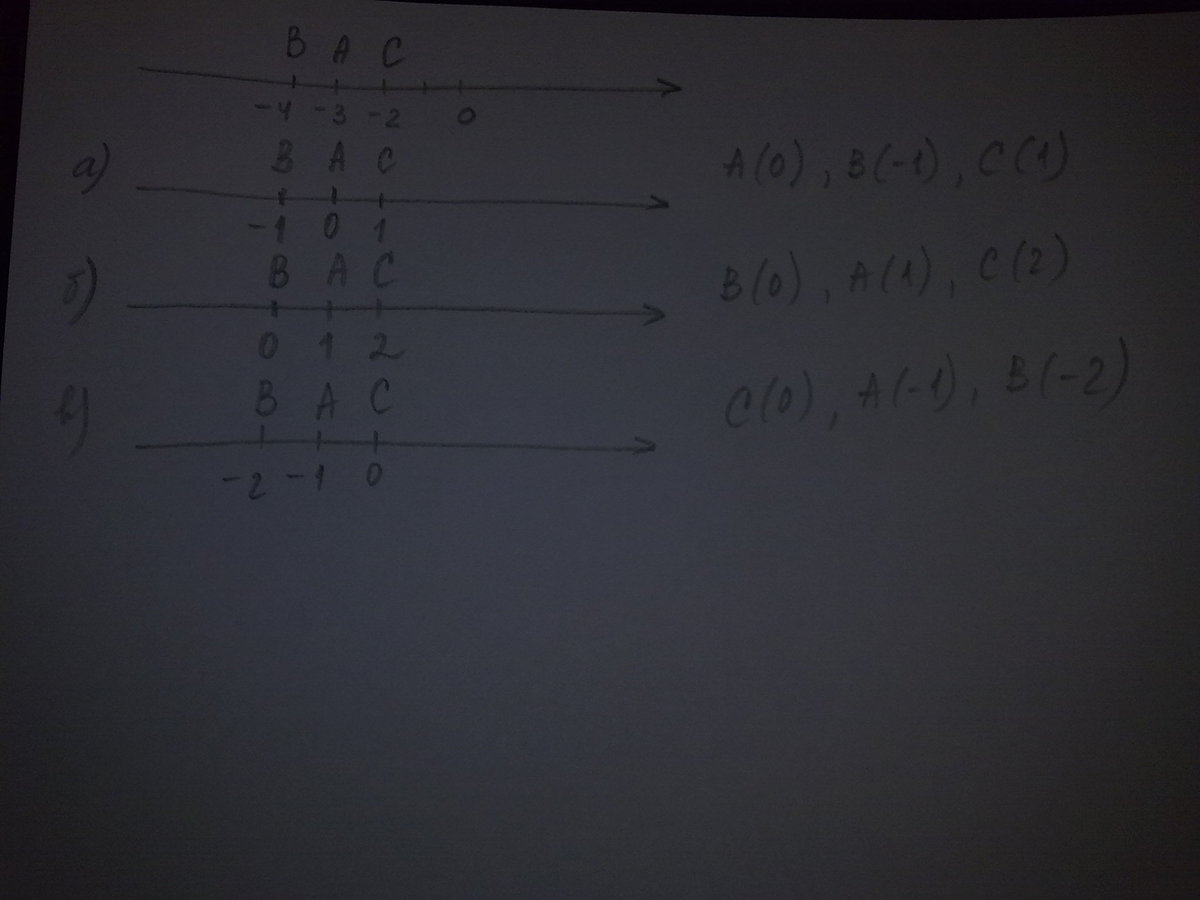 B A C
-4 -3 -2 0
а) B A C
-1 0 1
A(0), B(-1), C(1)
б) B A C
0 1 2
B(0), A(1), C(2)
в) B A C
-2 -1 0
C(0), A(-1), B(-2)